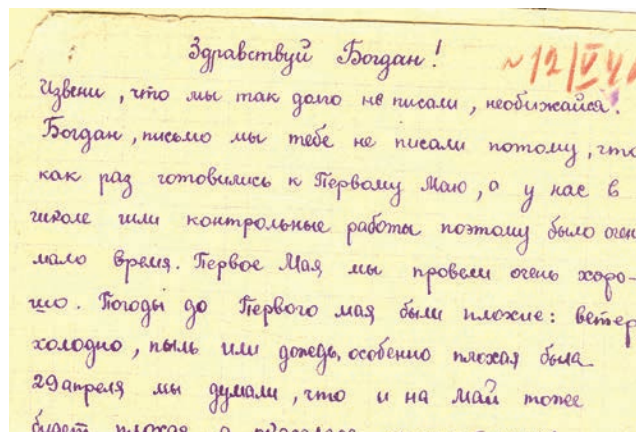 Здравствуй Богдан!
~12/V
Извени, что мы так долго не писали, необижайся.
Богдан, письмо мы тебе не писали потому, что
как раз готовились к Первому Маю, а у нас в
школе шли контрольные работы поэтому было очен
мало время. Первое Мая мы провели очень хоро-
шо. Погоды до Первого мая были плохие: ветер
холодно, пыль или дождь, особенно плохая была
29 апреля мы думали, что и на май тоже
будет плохая, а